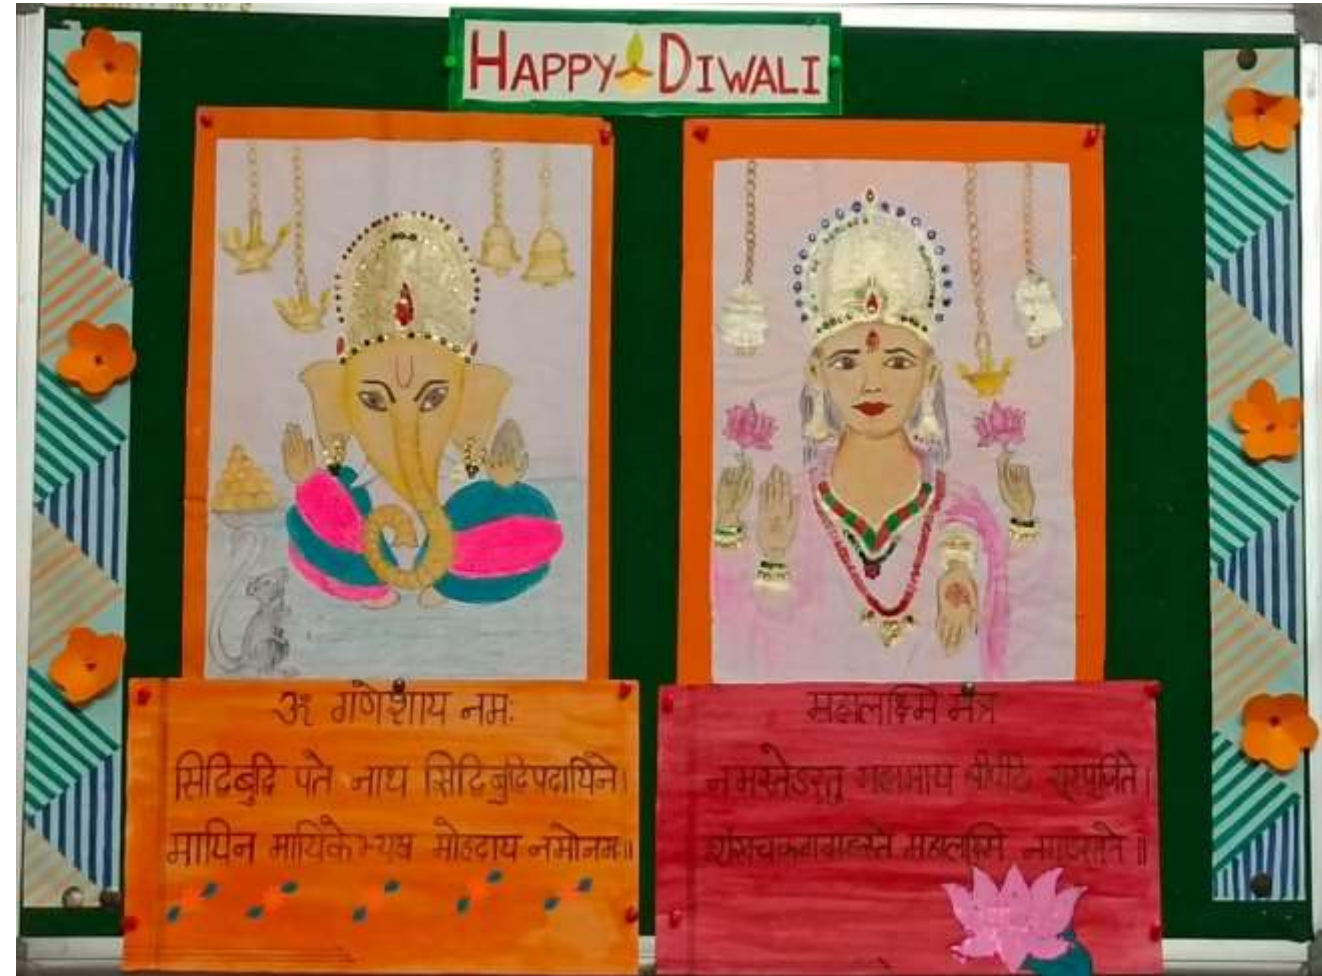 HAPPY DIWALI
ॐ गणेशाय नमः
सिटिबुद्दि पते नाथ सिटिबुटिपदायिने।
मायिन मायिकेभ्यष मोहदाय नमोनमः॥
महालक्ष्मि मंत्र
नमस्तेऽस्तु महामाय श्रीपीठे सुरपूजिते।
शंखचक्रगदाहस्ते महालक्ष्मि नमोस्तुते॥